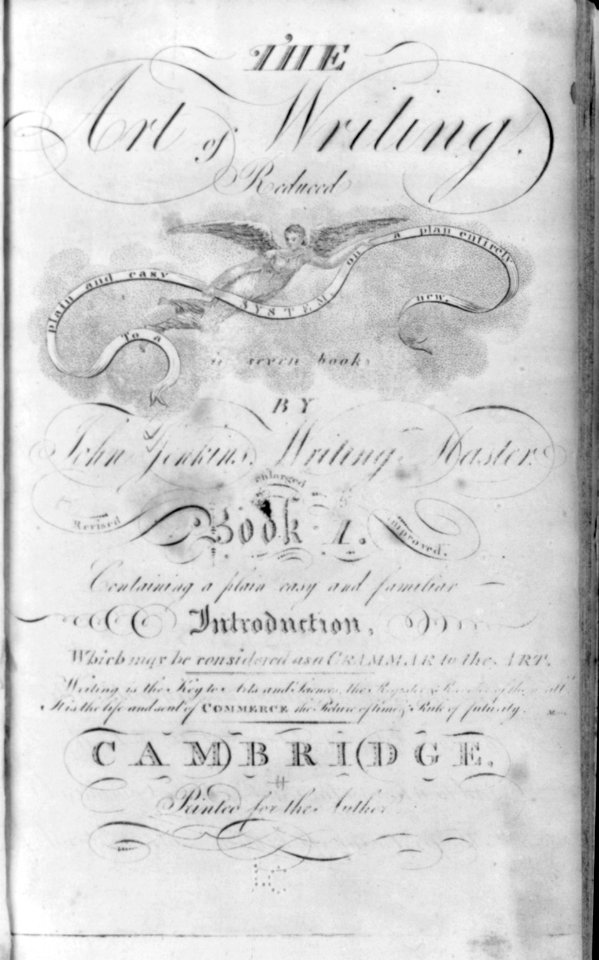 THE
Art of Writing,
Reduced
To a
plain and easy
SYSTEM,
on a plan entirely
new,
in seven books
BY
John Jenkins, Writing Master.
Revised
enlarged
&
improved.
Book I.
Containing a plain easy and familiar
Introduction,
Which may be considered as a GRAMMAR to the ART.
Writing is the Key to Arts and Sciences, the Register & of the
It is the life and soul of COMMERCE the Picture of time, & Rule of futurity.
CAMBRIDGE.
Printed for the Author